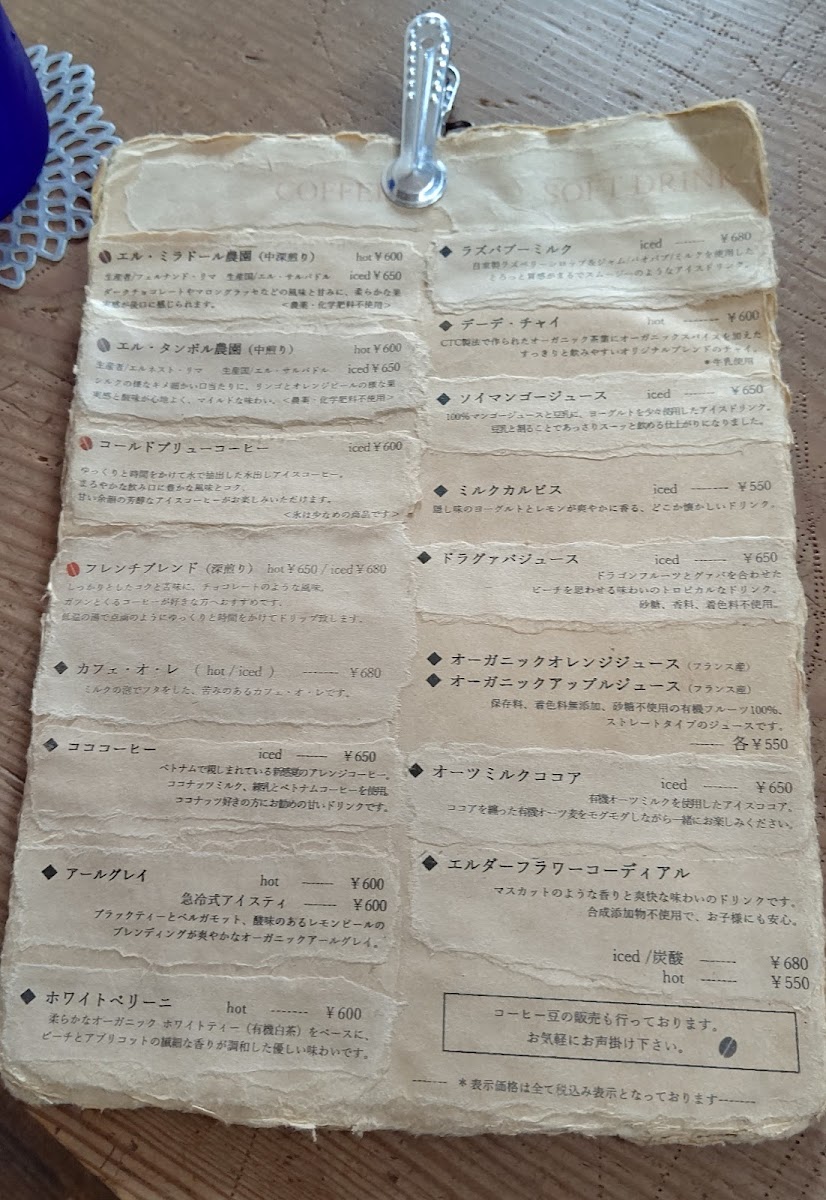 COFFEE
エル・ミラドール農園（中深煎り） hot￥600
生産者/フェルナンド・リマ 生産国/エル・サルバドル iced￥650
ダークチョコレートやマロングラッセなどの風味と甘みに、柔らかな果
実感が後口に感じられます。 ＜農薬・化学肥料不使用＞
エル・タンボル農園（中煎り） hot￥600
生産者/エルネスト・リマ 生産国/エル・サルバドル iced￥650
シルクの様なキメ細かい口当たりに、リンゴとオレンジピールの様な果
実感と酸味が心地よく、マイルドな味わい。＜農薬・化学肥料不使用＞
コールドブリューコーヒー iced￥600
ゆっくりと時間をかけて水で抽出した水出しアイスコーヒー。
柔らやかな飲み口に豊かな風味とコク、
甘い余韻の芳醇なアイスコーヒーがお楽しみいただけます。
＜氷は少なめの商品です＞
フレンチブレンド（深煎り） hot￥650 / iced￥680
しっかりとしたコクと苦味に、チョコレートのような風味。
ガツンとくるコーヒーが好きな方へおすすめです。
低温の湯で点滴のようにゆっくりと時間をかけてドリップ致します。
カフェ・オ・レ （ hot / iced ） ------- ￥680
ミルクの泡でフタをした、苦みのあるカフェ・オ・レです。
コココーヒー iced ------ ￥650
ベトナムで親しまれている新感覚のアレンジコーヒー。
ココナッツミルク、練乳とベトナムコーヒーを使用。
ココナッツ好きの方にお勧めの甘いドリンクです。
アールグレイ hot ------ ￥600
急冷式アイスティ ------ ￥600
ブラックティーとベルガモット、酸味のあるレモンピールの
ブレンディングが爽やかなオーガニックアールグレイ。
ホワイトベリーニ hot ------- ￥600
柔らかなオーガニック ホワイトティー（有機白茶）をベースに、
ピーチとアプリコットの繊細な香りが調和した優しい味わいです。
SOFT DRINK
ラズバブーミルク iced ------ ￥680
自家製ラズベリーシロップ&ジャム/バオバブ/ミルクを使用した
とろっと質感がまるでスムージーのようなアイスドリンク。
デーデ・チャイ hot ------- ￥600
CTC製法で作られたオーガニック茶葉にオーガニックスパイスを加えた
すっきりと飲みやすいオリジナルブレンドのチャイ。
＊牛乳使用
ソイマンゴージュース iced ------ ￥650
100％マンゴージュースと豆乳に、ヨーグルトを少々使用したアイスドリンク。
豆乳と割ることであっさりスーッと飲める仕上がりになりました。
ミルクカルピス iced ------- ￥550
隠し味のヨーグルトとレモンが爽やかに香る、どこか懐かしいドリンク。
ドラグァバジュース iced ------ ￥650
ドラゴンフルーツとグァバを合わせた
ピーチを思わせる味わいのトロピカルなドリンク。
砂糖、香料、着色料不使用。
オーガニックオレンジジュース（フランス産）
オーガニックアップルジュース（フランス産）
保存料、着色料無添加、砂糖不使用の有機フルーツ100%、
ストレートタイプのジュースです。
------ 各￥550
オーツミルクココア iced ------ ￥650
有機オーツミルクを使用したアイスココア、
ココアを纏った有機オーツ麦をモグモグしながら一緒にお楽しみください。
エルダーフラワーコーディアル
マスカットのような香りと爽快な味わいのドリンクです。
合成添加物不使用で、お子様にも安心。
iced /炭酸 ------ ￥680
hot ------ ￥550
コーヒー豆の販売も行っております。
お気軽にお声掛け下さい。
------ ＊表示価格は全て税込み表示となっております------